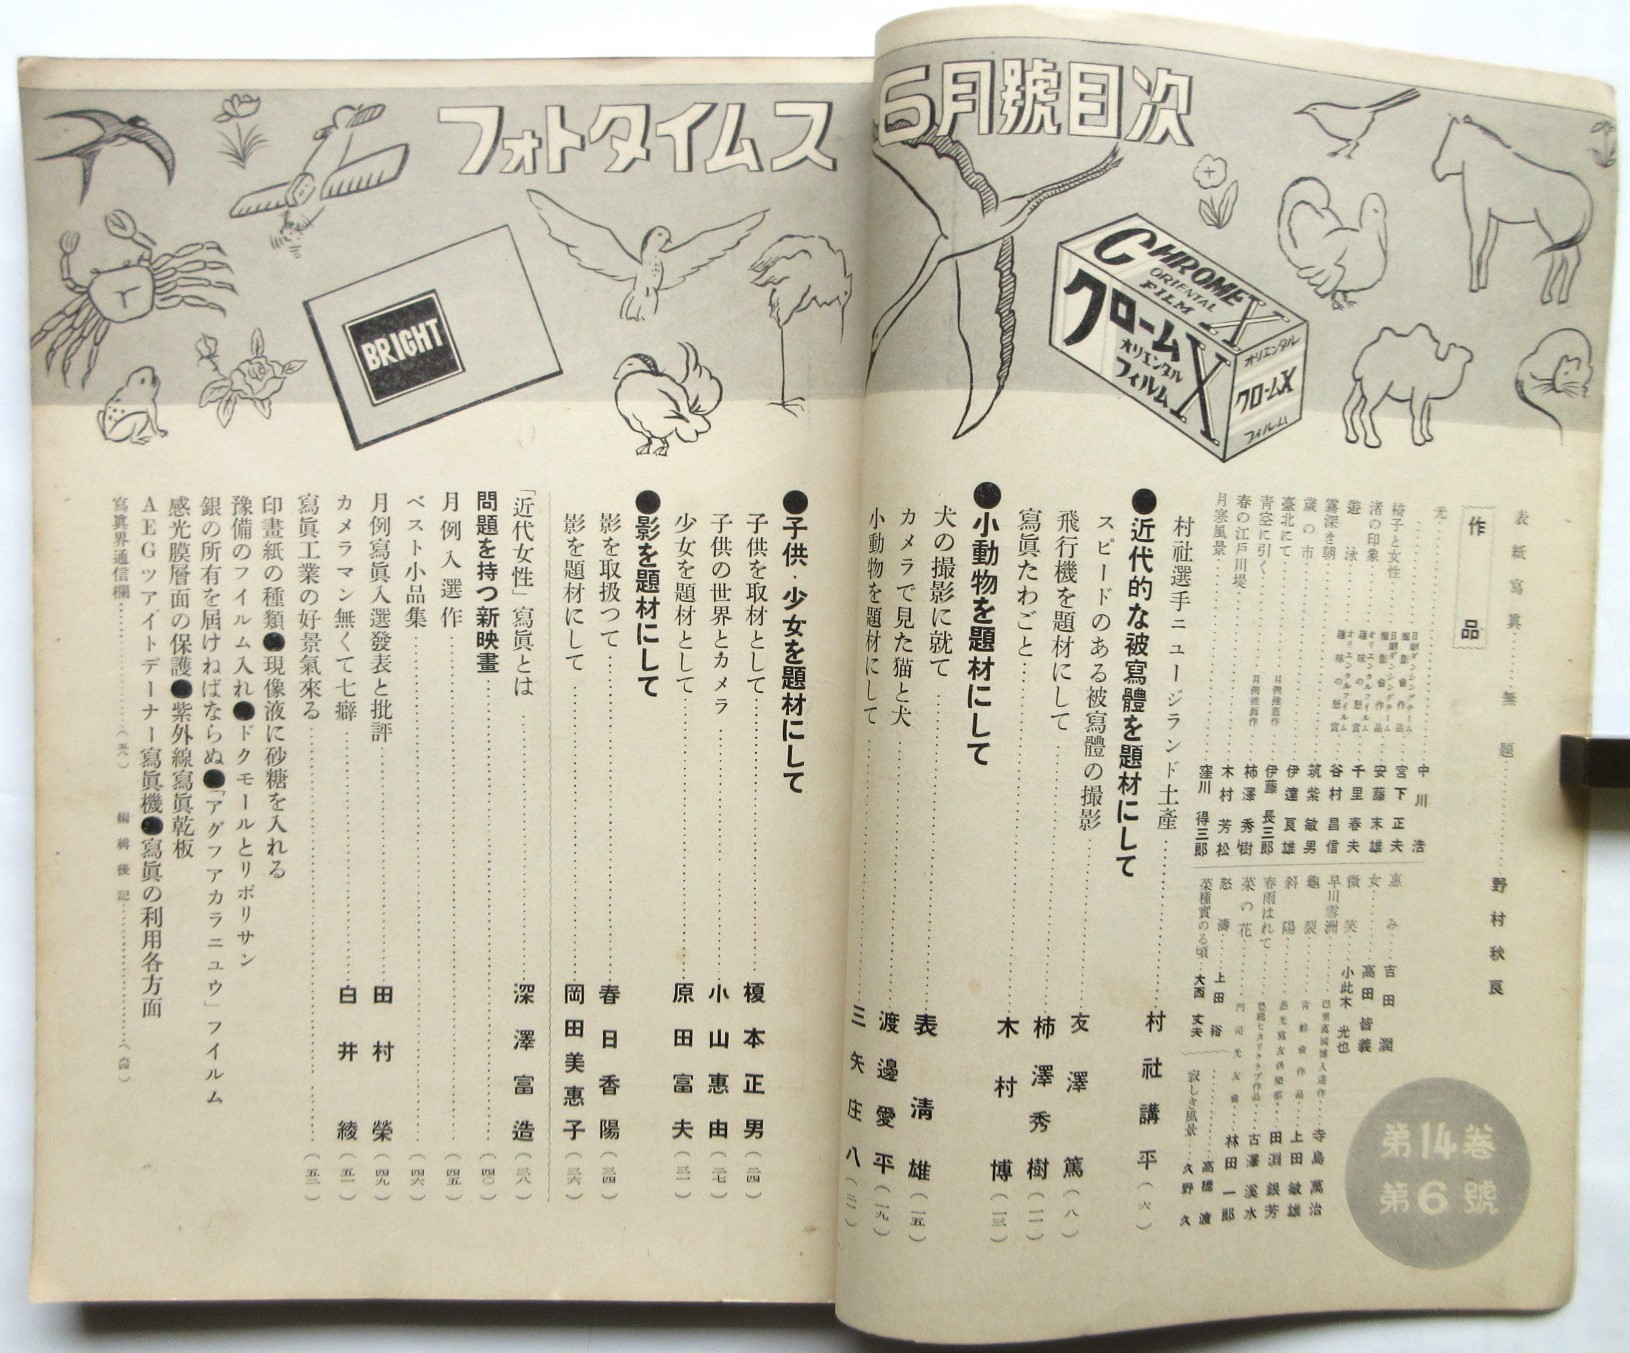 フォトタイムス 6月號目次
CHROME X
ORIENTAL
FILM
クロームX
オリエンタル
フィルム
オリエンタル
クロームX
フィルム
BRIGHT
第14卷
第6號
表紙寫眞……無題……野村秋良
作品
光……中川浩
椅子と女性……宮下正夫
渚の印象……安藤末雄
遊泳……千里春夫
霧深き朝……谷村昌信
歳の市……筑紫敏男
臺北にて……伊達良雄
靑空に引く……月例推薦作……伊藤長三郎
春の江戸川堤……月例推薦作……柿澤秀樹
月寒風景……木村芳松
窪川得三郎
惠み……吉田潤
女……高田皆義
微笑……小此木光也
早川雪洲……寺島萬治
龜裂……上田敏雄
斜陽……田淵銀芳
春雨はれて……古澤溪水
菜の花……林田一郎
怒濤……上田裕
菜種實のる頃……大西丈夫
寂しき風景……久野久
高橋渡
村社選手ニュージランド土產……村社講平(六)
●近代的な被寫體を題材にして
スピードのある被寫體の撮影……友澤篤(八)
飛行機を題材にして……柿澤秀樹(一一)
寫眞たわごと……木村博(一三)
●小動物を題材にして
犬の撮影に就て……表淸雄(一五)
カメラで見た猫と犬……渡邊愛平(一九)
小動物を題材にして……三矢庄八(二一)
●子供・少女を題材にして
子供を取材として……榎本正男(二四)
子供の世界とカメラ……小山惠由(二七)
少女を題材として……原田富夫(三一)
●影を題材にして
影を取扱つて……春日香陽(三四)
影を題材にして……岡田美惠子(三六)
「近代女性」寫眞とは……深澤富造(三八)
問題を持つ新映畫……(四〇)
月例入選作……(四五)
ベスト小品集……(四六)
月例寫眞入選發表と批評……田村榮(四九)
カメラマン無くて七癖……白井綾(五一)
寫眞工業の好景氣來る……(五二)
印畫紙の種類●現像液に砂糖を入れる
豫備のフイルム入れ●ドクモールとリボリサン
銀の所有を届けねばならぬ●「アグフアカラニュウ」フイルム
感光膜層面の保護●紫外線寫眞乾板
AEGツアイトデーナー寫眞機●寫眞の利用各方面
寫眞界通信欄……(五八) 編輯後記……(六四)